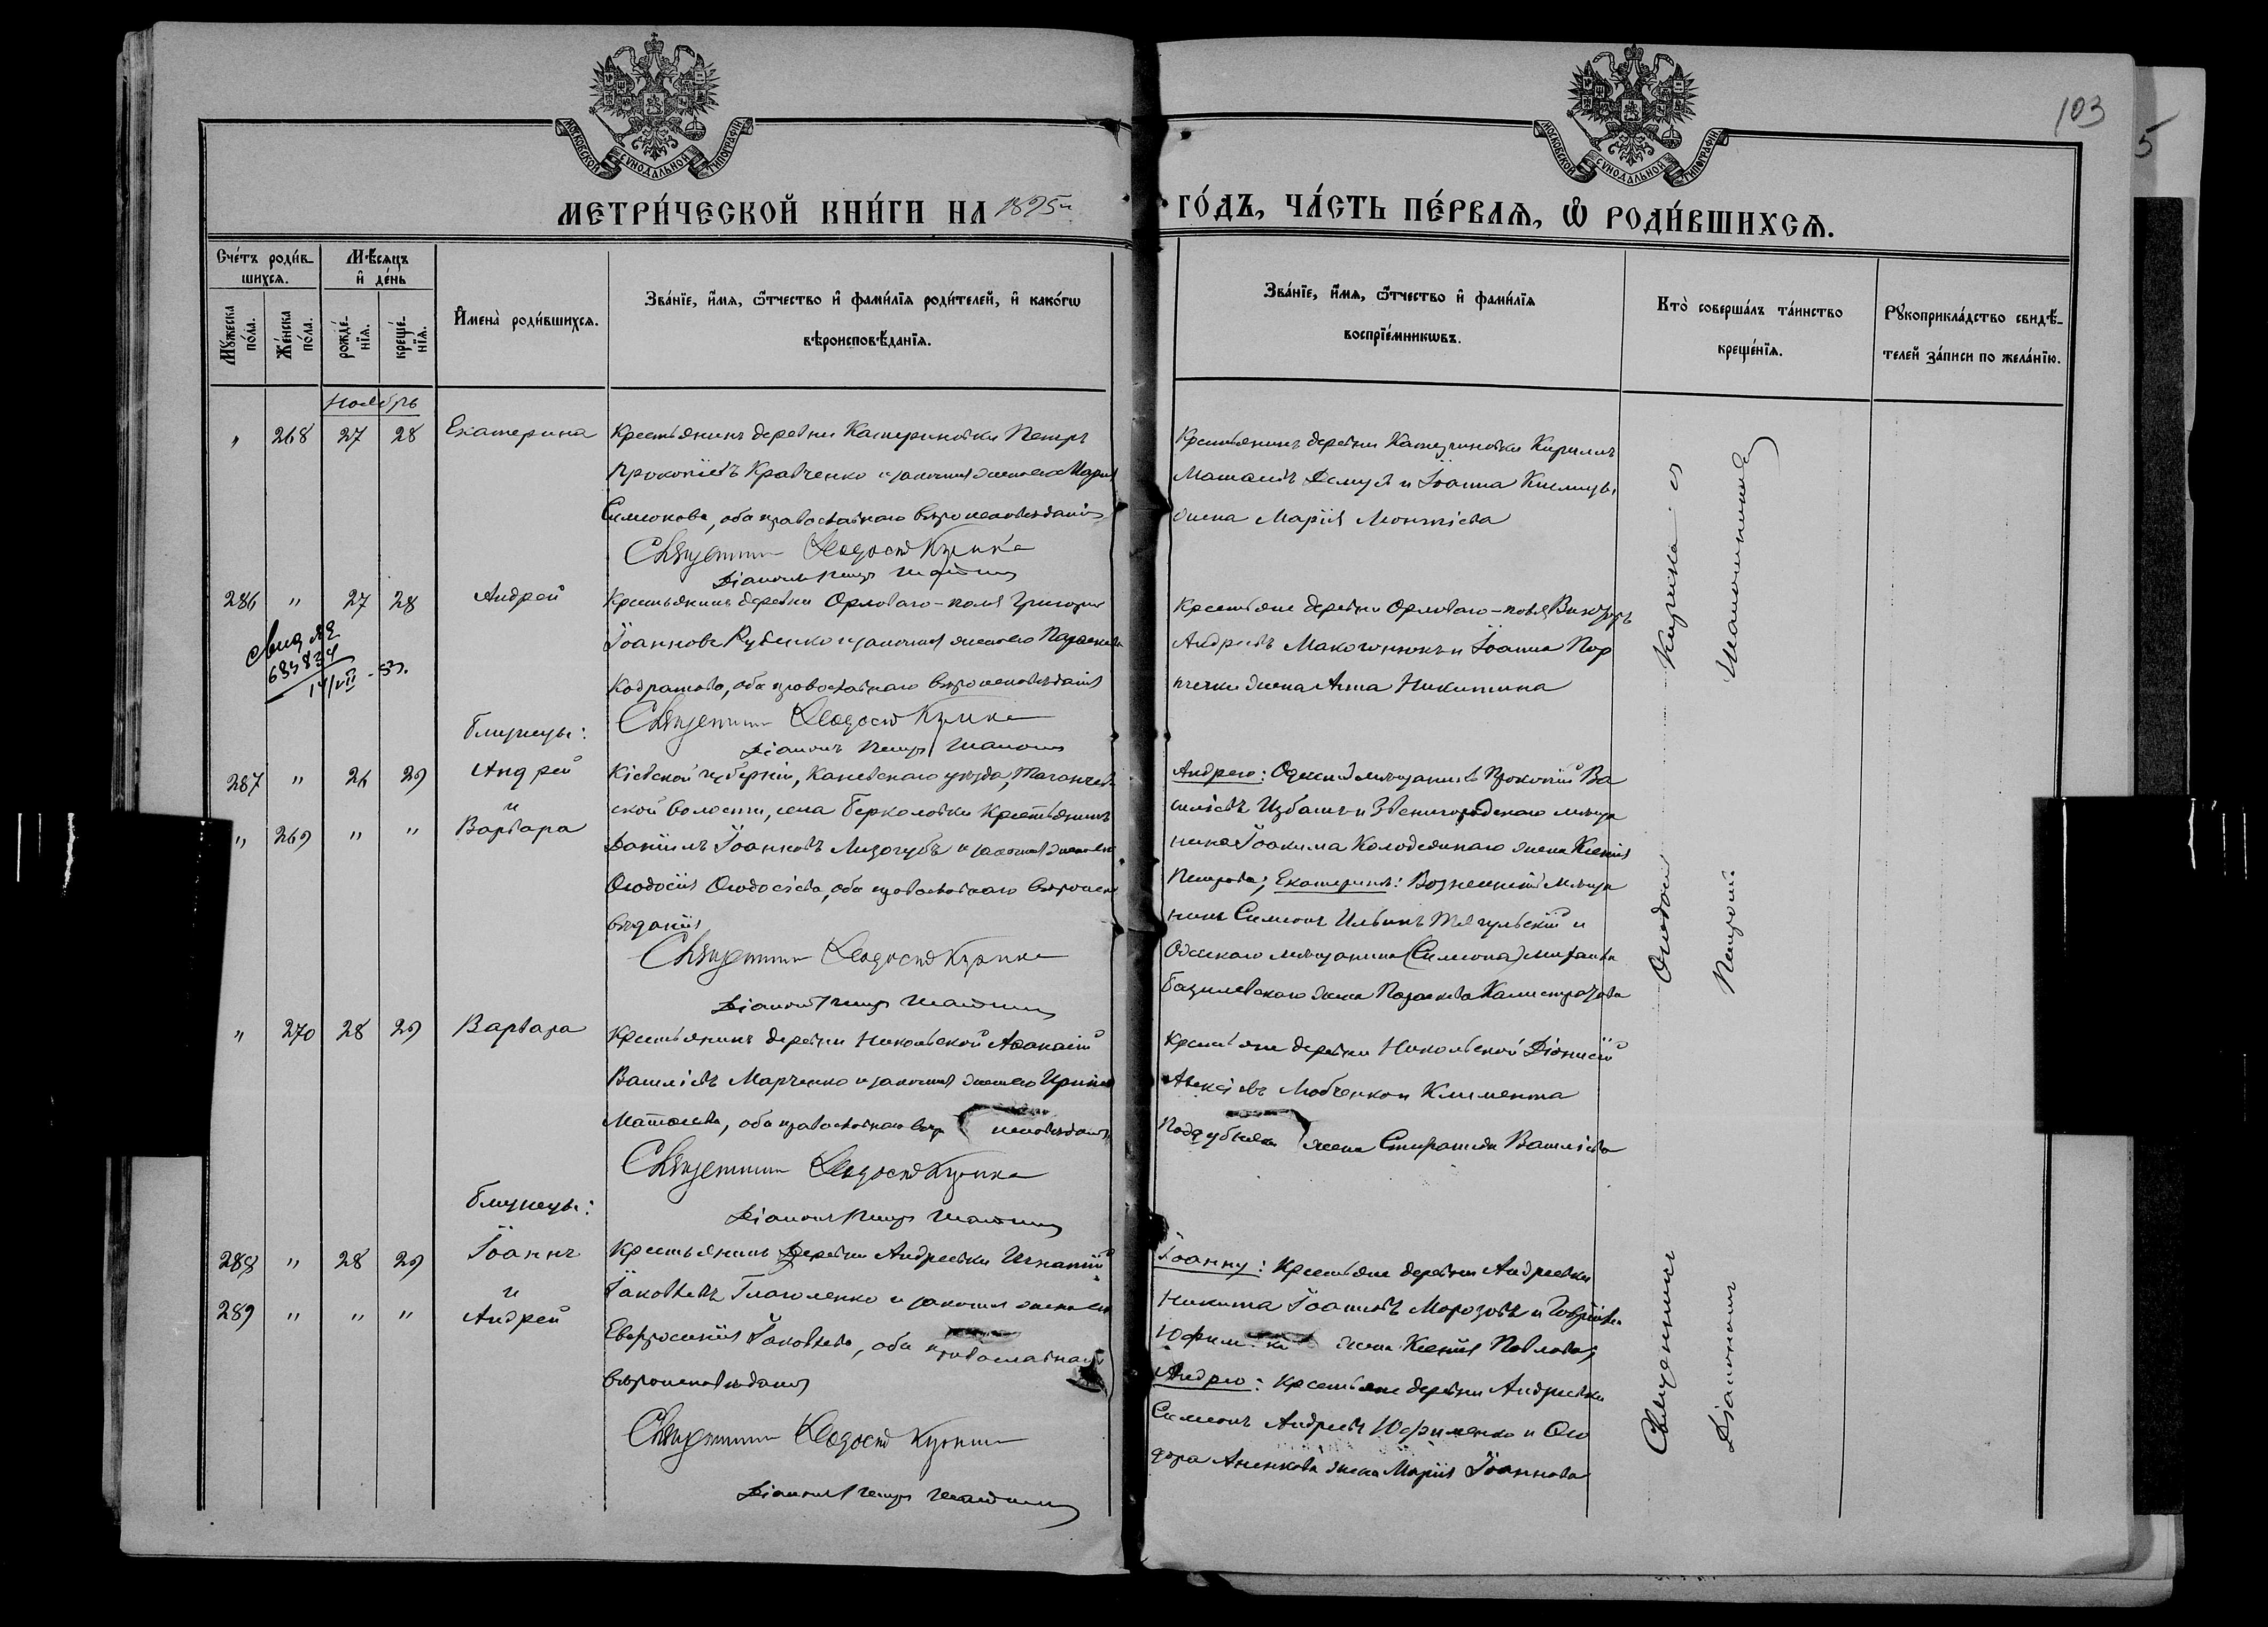 103
5
МОСКОВСКОЙ СѴНОДАЛЬНОЙ ТИПОГРАФІИ
МОСКОВСКОЙ СѴНОДАЛЬНОЙ ТИПОГРАФІИ
МЕТРИ́ЧЕСКОЙ КНИ́ГИ НА 1895й
ГО́ДЪ, ЧА́СТЬ ПЕ́РВАѦ, Ѡ҆ РОДИ́ВШИХСѦ.
Сче́тъ роди́в-
шихсѧ.
Мѣ́сѧцъ
и҆ де́нь
Мꙋ́жеска по́ла.
Же́нска по́ла.
рожде́-нїѧ.
креще́-нїѧ.
И҆мена̀ роди́вшихсѧ.
Зва́нїе, и҆́мѧ, ѻ҆́тчество и҆ фами́лїѧ роди́телей, и҆ како́гѡ
вѣроисповѣ́данїѧ.
Зва́нїе, и҆́мѧ, ѻ҆́тчество и҆ фами́лїѧ
воспрїе́мникѡвъ.
Кто̀ соверша́лъ та́инство
креще́нїѧ.
Рꙋкоприкла́дство свидѣ́-
телей за́писи по жела́нїю.
Ноябрь
" 268 27 28 Екатерина
Крестьянинъ деревни Катериновки Петръ
Прокопіевъ Кравченко и законная жена его Марія
Симеонова, оба православнаго вѣроисповѣданія
Священникъ Ѳеодосій Курика
Діаконъ Петръ
Крестьянинъ деревни Катериновки Кириллъ
Матѳеевъ и Іоанна
жена Марія Леонтіева
286 " 27 28 Андрей
Свид АЕ
17/VII - 53.
Крестьянинъ деревни Орловаго-поля Григорій
Іоанновъ Рубенко и законная жена его Параскева
Кодратова, оба православнаго вѣроисповѣданія
Священникъ Ѳеодосій Курика
Діаконъ Петръ
Крестьяне деревни Орловаго-поля Викторъ
Андреевъ Макогонюкъ и Іоанна
жена Анна Никитина
Близнецы:
287 " 26 29 Андрей
и
" 269 " " Варвара
Кіевской губерніи, Каневскаго уѣзда, Таганчев
ской волости, села Берколовки крестьянинъ
Даніилъ Іоанновъ Лизогубъ и законная жена его
Ѳеодосія Ѳеодосіева, оба православнаго вѣроиспо
вѣданія
Священникъ Ѳеодосій Курика
Діаконъ Петръ
Андрею: Одесскій мѣщанинъ Прокопій Ва
силіевъ Избашъ и Звенигородскаго мѣща
нина Іоакима Колодежнаго жена Ксенія
Петрова; Екатеринѣ: Вознесенскій мѣща
нинъ Симеонъ Ильинъ Тягульскій и
Одесскаго мѣщанина (Симеона)
Базилевскаго жена Параскева Калистратова
" 270 28 29 Варвара
Крестьянинъ деревни Никольской Аѳанасій
Василіевъ Марченко и законная жена его Ирина
Матѳеева, оба православнаго вѣроисповѣданія
Священникъ Ѳеодосій Курика
Діаконъ Петръ
Крестьяне деревни Никольской Діонисій
Алексіевъ Любченко и Климента
Поддубняка жена Стефанида Василіева
Близнецы:
288 " 28 29 Іоаннъ
и
289 " " " Андрей
Крестьянинъ деревни Андреевки Игнатій
Іаковлевъ Глаголенко и законная жена его
Евфросинія Іаковлева, оба православнаго
вѣроисповѣданія
Священникъ Ѳеодосій Курика
Діаконъ Петръ
Іоанну: Крестьяне деревни Андреевки
Никита Іоанновъ Морозовъ и Гавріила
жена Ксенія Павлова;
Андрею: крестьяне деревни Андреевки
Симеонъ Андреевъ Юфименко и Ѳео
дора Аненкова жена Марія Іоаннова
Священникъ Ѳеодосій Курика и
Діакономъ Петромъ